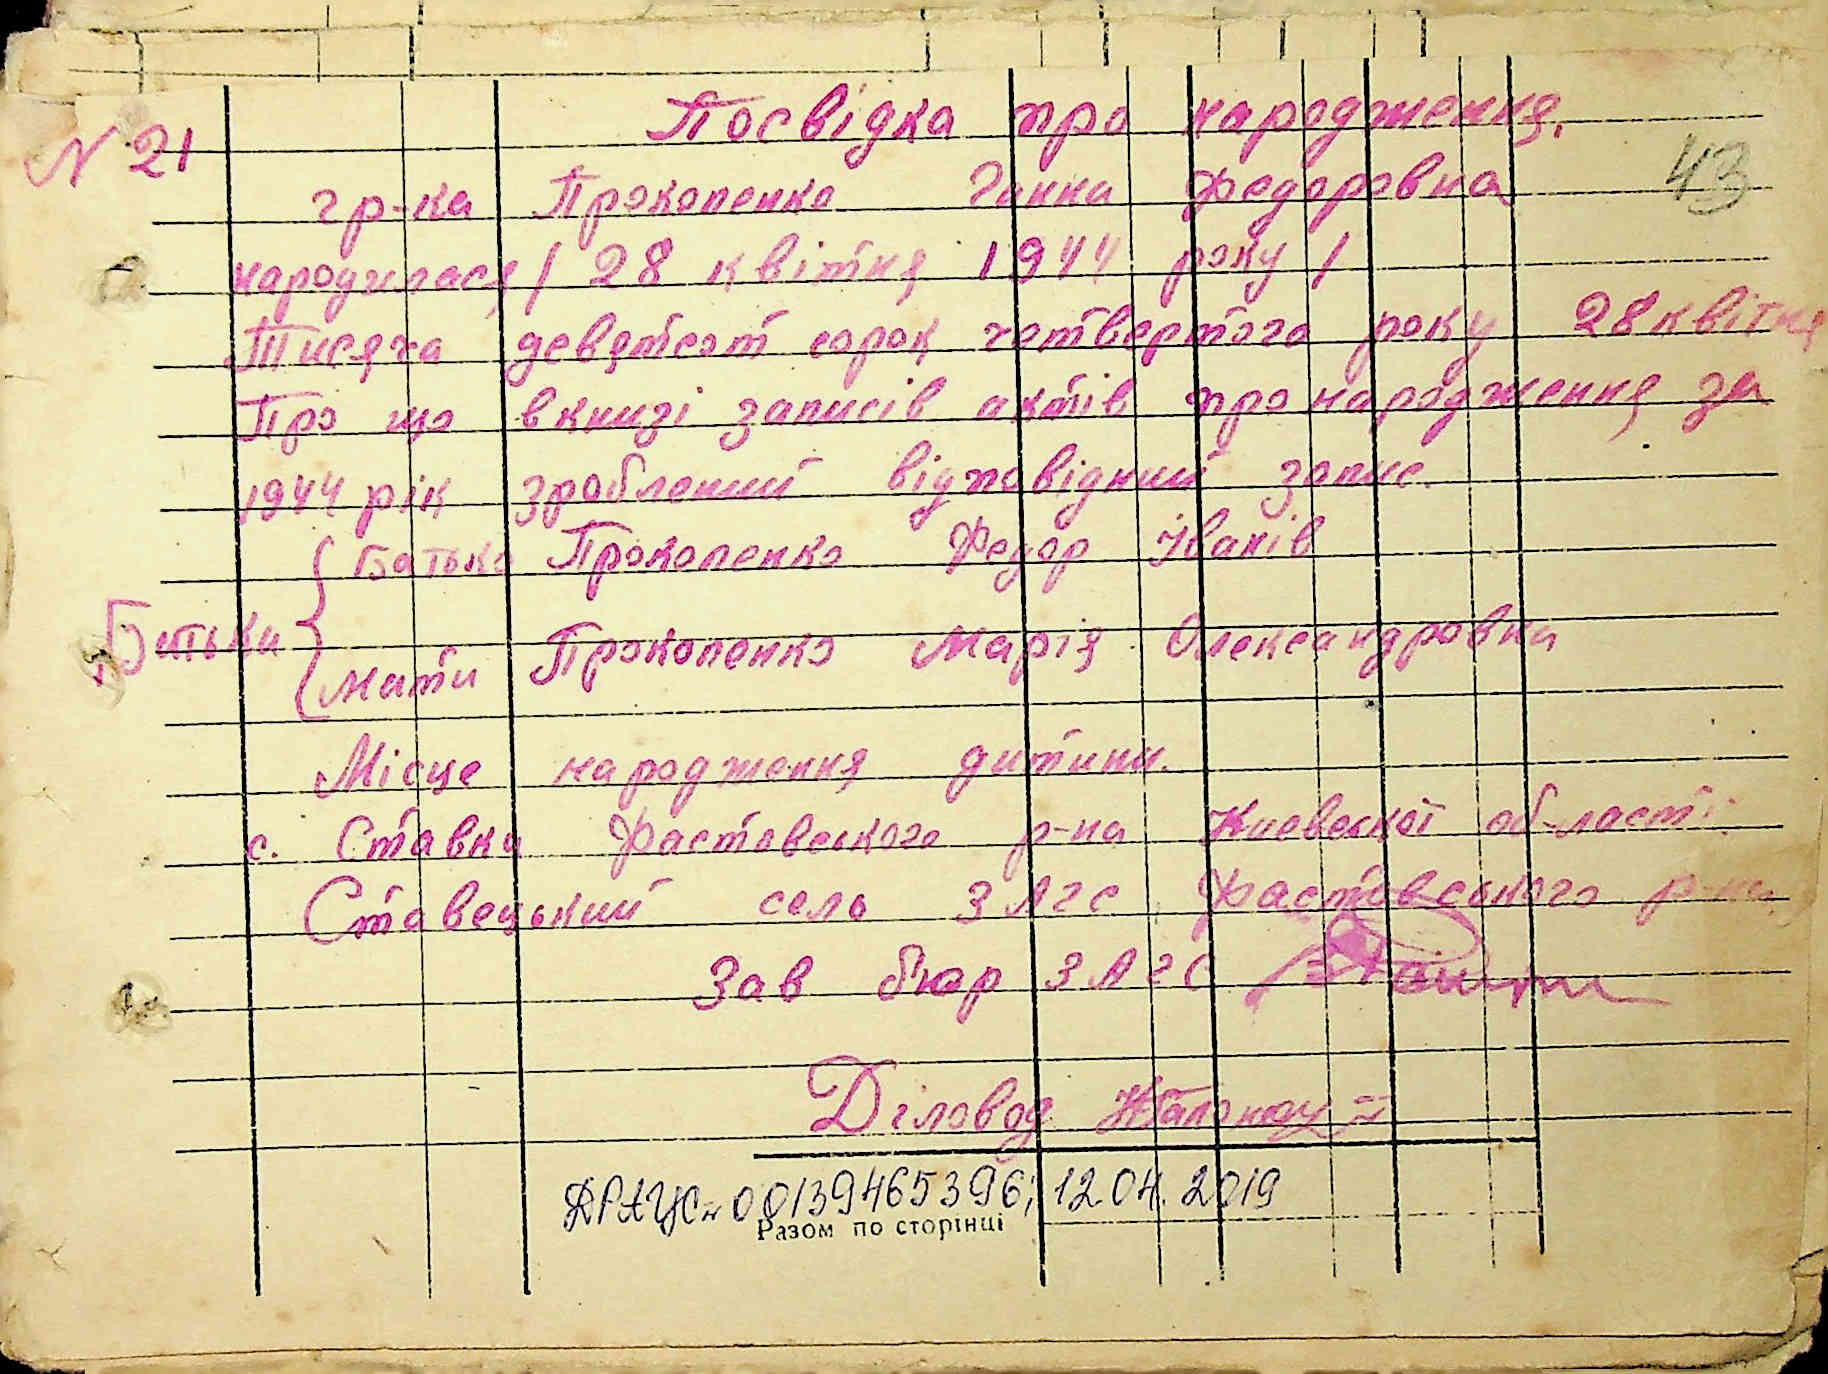 Посвідка про народження.
N 21
43
гр-ка Прокопенко Ганна Федоровна
народилася / 28 квітня 1944 року /
Тисяча девятсот сорок четвертого року 28 квітня
Про що в книзі записів актів про народження за
1944 рік зроблений відповідний запис.
Батько Прокопенко Федор Іванів
Батьки
Мати Прокопенко Марія Олександровна
Місце народження дитини.
с. Ставки Фастовського р-на Киевської об-ласті.
Ставецький сель ЗАГС Фастовського р-на
Зав бюр ЗАГС
Діловод
ДРАЦС 00139465396; 12.04.2019
Разом по сторінці